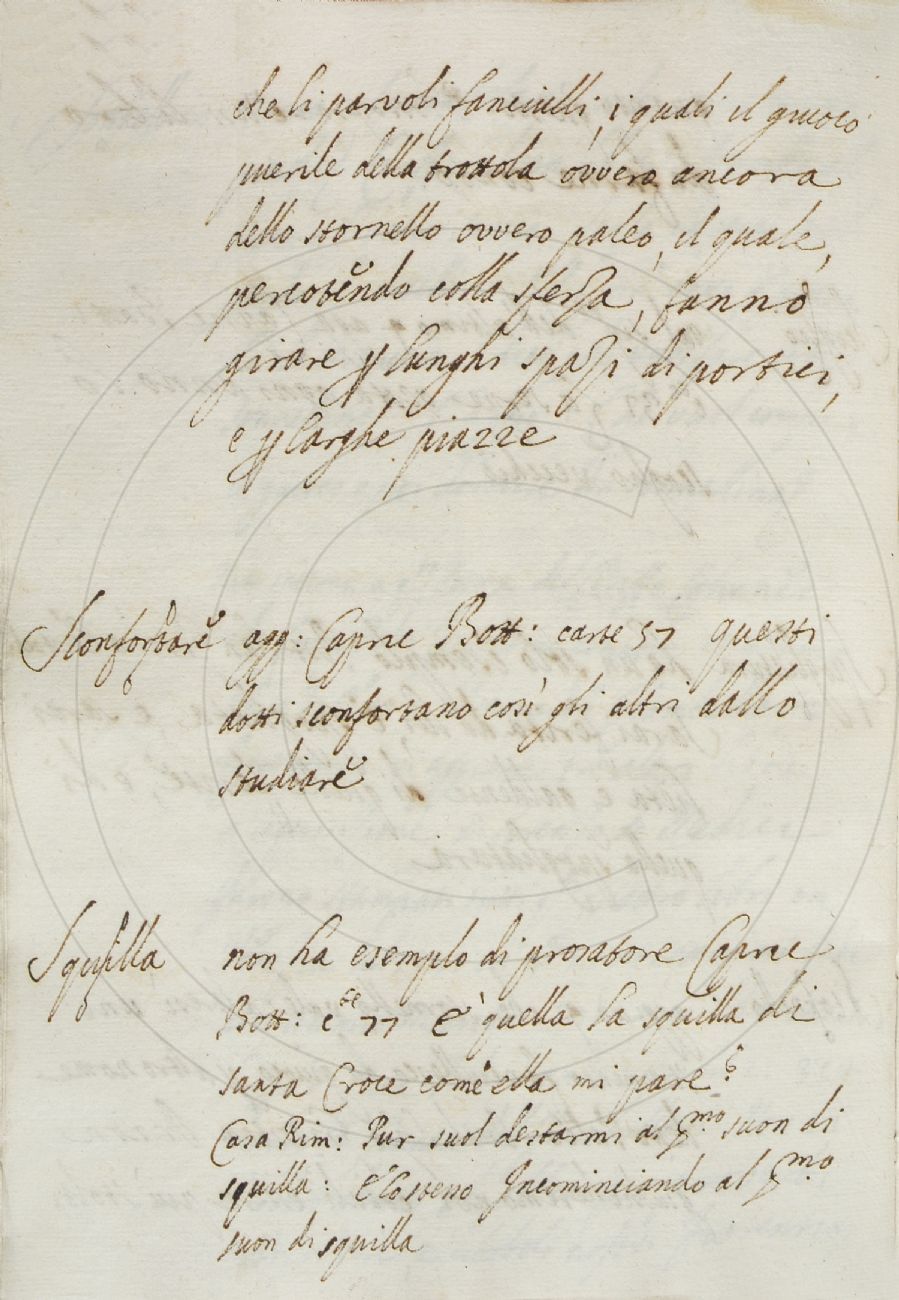 che li parvoli fanciulli, i quali il giuoco
puerile della trottola ovvero ancora
dello stornello ovvero paleo, il quale,
percotendo colla sferza, fanno
girare ꝑ lunghi spazi di portici,
e ꝑ larghe piazze
Sconfortare agg: Capric Bott: carte 57 questi
dotti sconfortano così gli altri dallo
studiare
Squilla non ha esemplo di prosatore Capric
Bott: c.te 77 È quella la squilla di
santa Croce com'ella mi pare?
Casa Rim: Pur suol destarmi al p.mo suon di
squilla: E lo stesso Incominciando al p.mo
suon di squilla